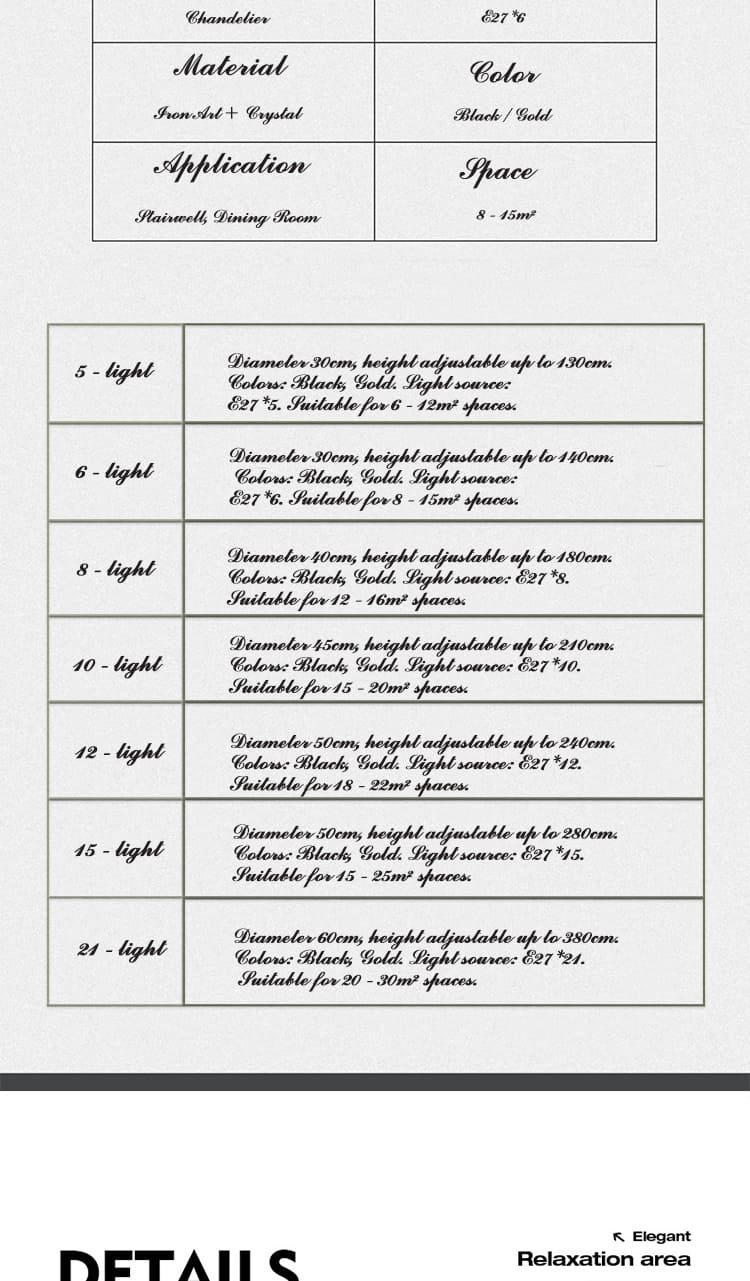 Chandelier
E27 *6
Material
Color
Iron Art + Crystal
Black / Gold
Application
Space
Stairwell, Dining Room
8 - 15m²
5 - light
Diameter 30cm, height adjustable up to 130cm.
Colors: Black, Gold. Light source:
E27 *5. Suitable for 6 - 12m² spaces.
6 - light
Diameter 30cm, height adjustable up to 140cm.
Colors: Black, Gold. Light source:
E27 *6. Suitable for 8 - 15m² spaces.
8 - light
Diameter 40cm, height adjustable up to 180cm.
Colors: Black, Gold. Light source: E27 *8.
Suitable for 12 - 16m² spaces.
10 - light
Diameter 45cm, height adjustable up to 210cm.
Colors: Black, Gold. Light source: E27 *10.
Suitable for 15 - 20m² spaces.
12 - light
Diameter 50cm, height adjustable up to 240cm.
Colors: Black, Gold. Light source: E27 *12.
Suitable for 18 - 22m² spaces.
15 - light
Diameter 50cm, height adjustable up to 280cm.
Colors: Black, Gold. Light source: E27 *15.
Suitable for 15 - 25m² spaces.
21 - light
Diameter 60cm, height adjustable up to 380cm.
Colors: Black, Gold. Light source: E27 *21.
Suitable for 20 - 30m² spaces.
Elegant
Relaxation area
DETAILS